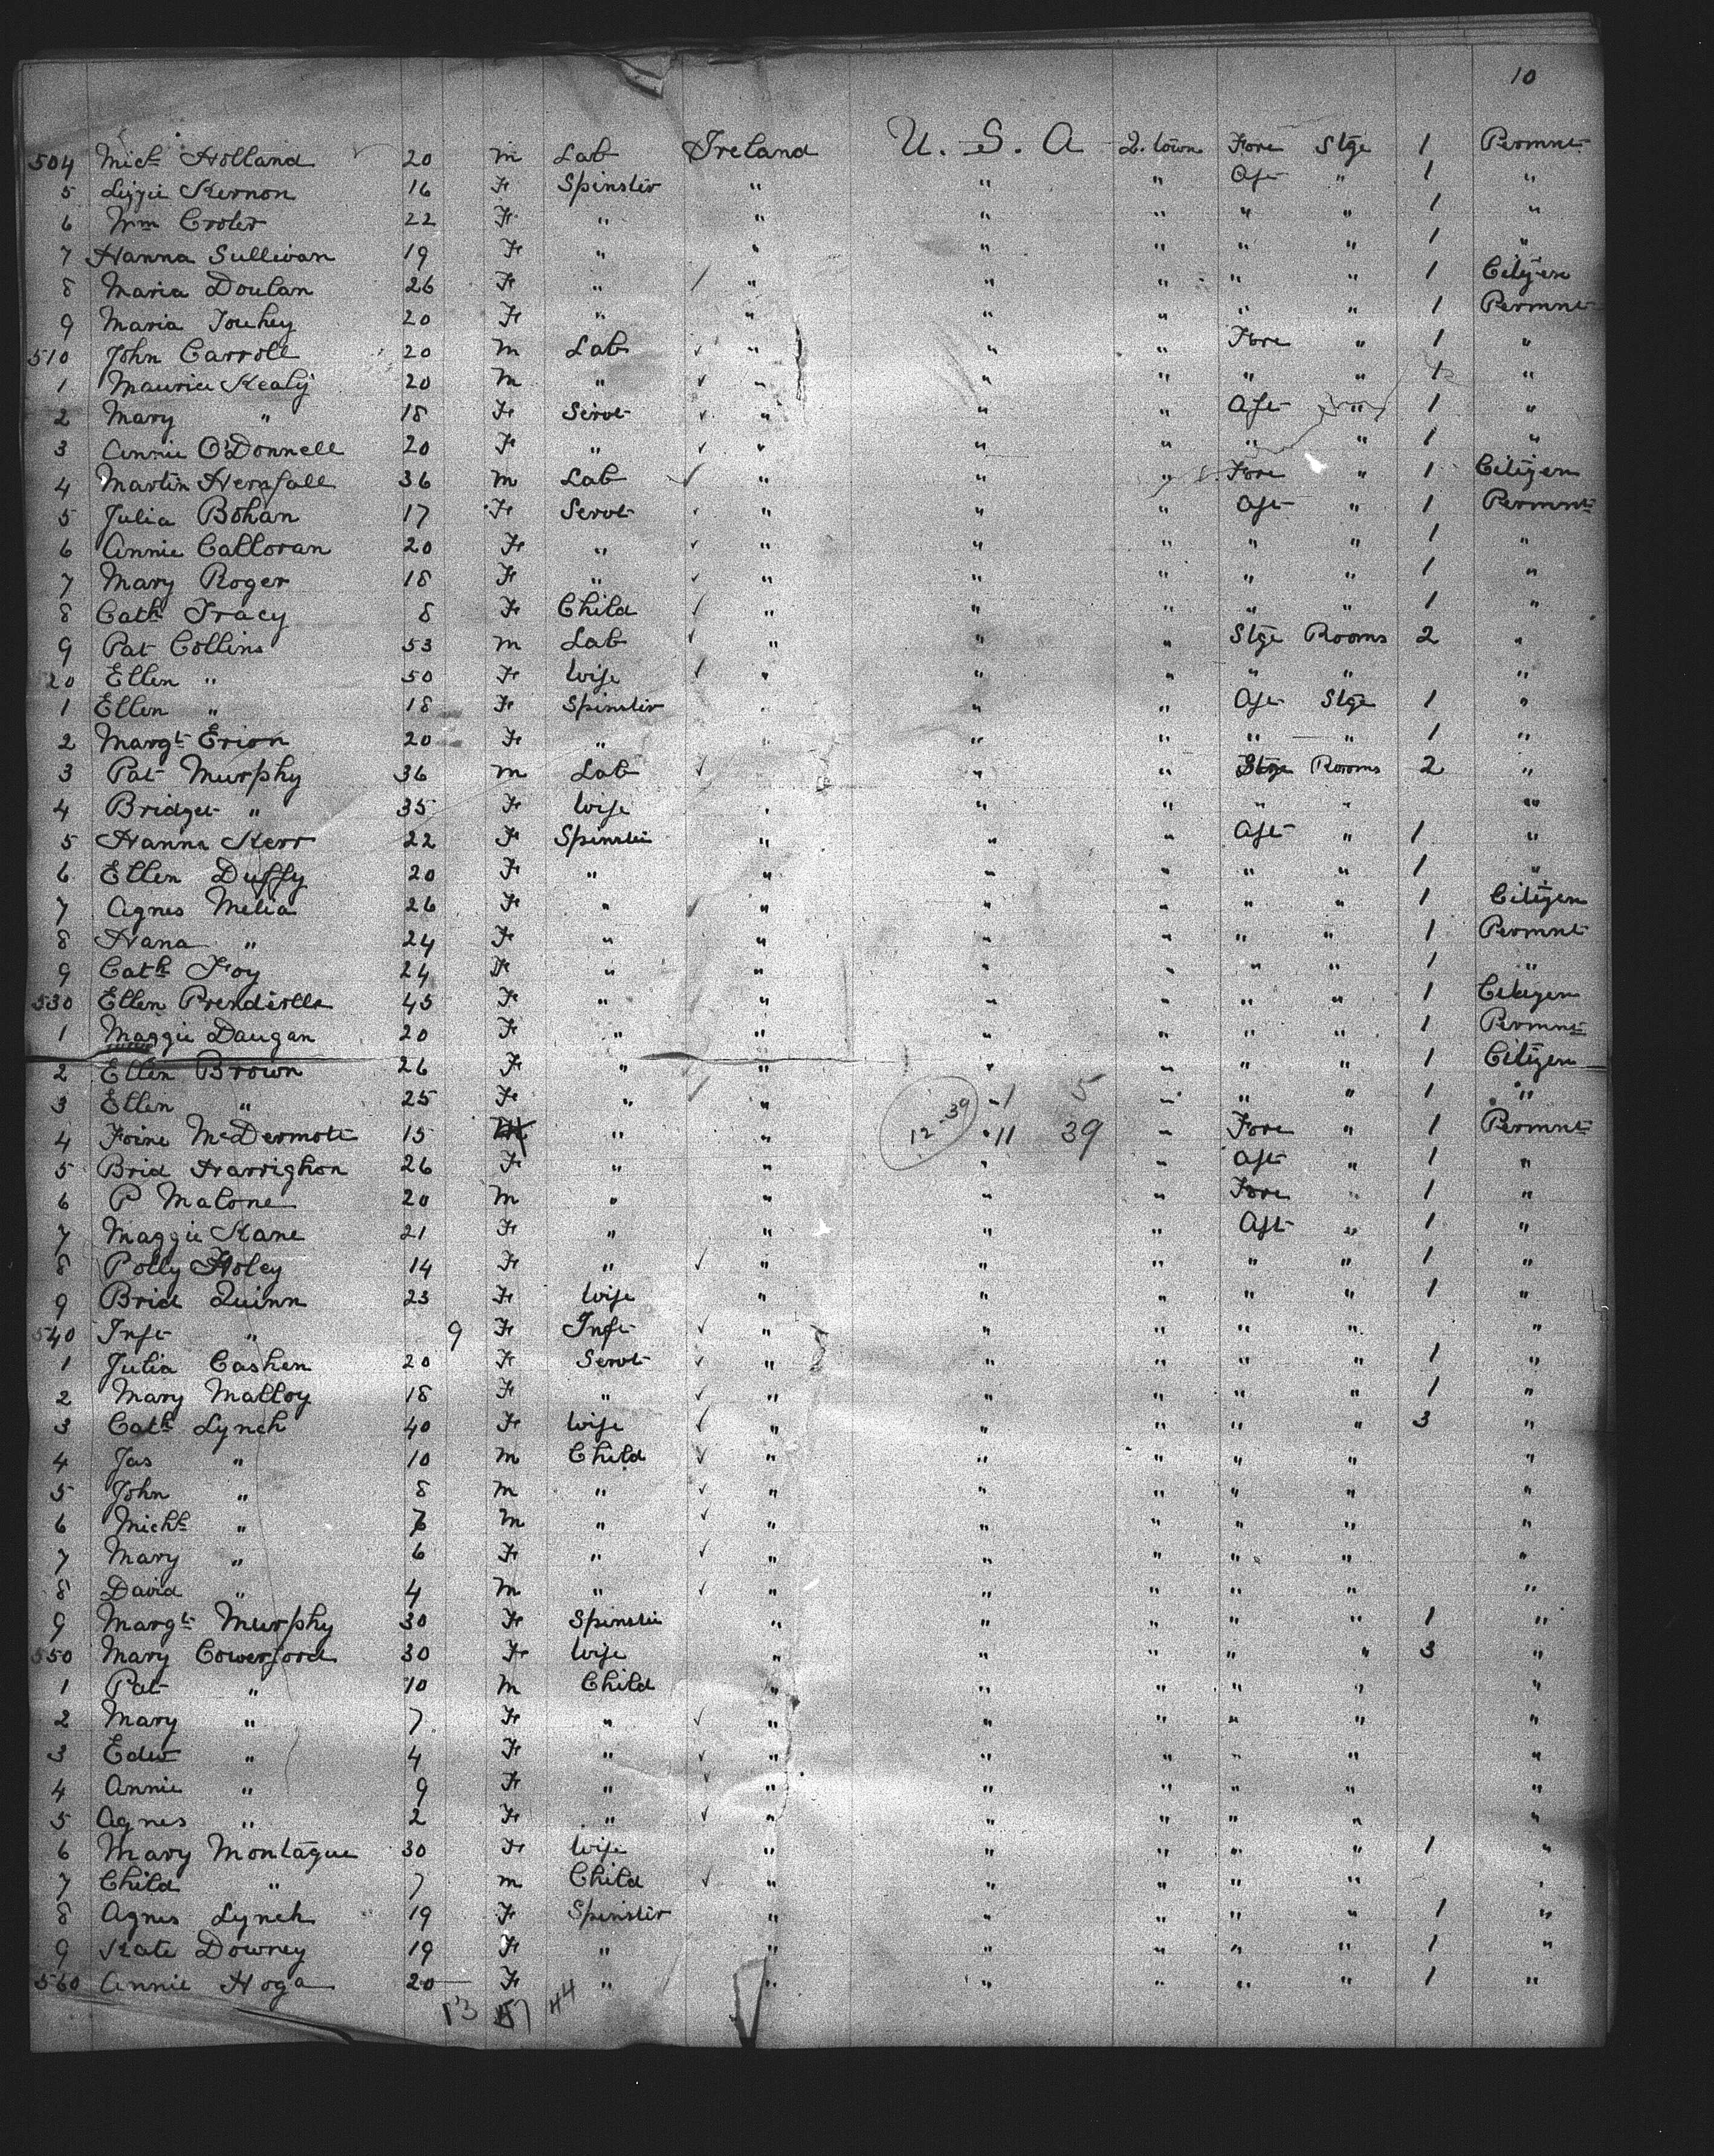 10
504 Mich Holland 20 m Lab Ireland U. S. A Q. town Fore Stge 1 Permnt
5 Lizzie Kernon 16 Fe Spinster " " " Aft " 1 "
6 Wm Croter 22 Fe " " " " " " 1 "
7 Hanna Sullivan 19 Fe " " " " " " 1 "
8 Maria Doulan 26 Fe " " " " " " 1 Citizen
9 Maria Touhey 20 Fe " " " " " " 1 Permnt
510 John Carroll 20 m Lab " " " Fore " 1 "
1 Maurice Kealy 20 m " " " " " " 1 "
2 Mary " 18 Fe Servt " " " Aft " 1 "
3 Annie O'Donnell 20 Fe " " " " " " 1 "
4 Martin 36 m Lab " " " Fore " 1 Citizen
5 Julia Bohan 17 Fe Servt " " " Aft " 1 Permnt
6 Annie Calloran 20 Fe " " " " " " 1 "
7 Mary Roger 18 Fe " " " " " " 1 "
8 Cath Tracy 8 Fe Child " " " " " 1 "
9 Pat Collins 53 m Lab " " " Stge Rooms 2 "
20 Ellen " 50 Fe Wife " " " " " "
1 Ellen " 18 Fe Spinster " " " Aft Stge 1 "
2 Margt Erion 20 Fe " " " " " " 1 "
3 Pat Murphy 36 m Lab " " Stge Rooms 2 "
4 Bridget " 35 Fe Wife " " " " "
5 Hanna Kerr 22 Fe Spinster " " " Aft " 1 "
6 Ellen Duffy 20 Fe " " " " " " 1 "
7 Agnes Melia 26 Fe " " " " " " 1 Citizen
8 Hana " 24 Fe " " " " " " 1 Permnt
9 Cath Foy 24 Fe " " " " " " 1 "
530 Ellen Prendville 45 Fe " " " " " " 1 Citizen
1 Maggie Daugan 20 Fe " " " " " " 1 Permnt
2 Ellen Brown 26 Fe " " " " " " 1 Citizen
3 Ellen " 25 Fe " " " 1 5 " " " 1 "
4 McDermott 15 " " 12-39 " 11 39 " Fore " 1 Permnt
5 Brid Harrighon 26 Fe " " " " Aft " 1 "
6 P Malone 20 m " " " " Fore " 1 "
7 Maggie Kane 21 Fe " " " " Aft " 1 "
8 Polly Holey 14 Fe " " " " " " 1 "
9 Brid Quinn 23 Fe Wife " " " " " 1 "
540 Inft " 9 Fe Inft " " " " " "
1 Julia Cashen 20 Fe Servt " " " " " 1 "
2 Mary Malloy 18 Fe " " " " " " 1 "
3 Cath Lynch 40 Fe Wife " " " " " 3 "
4 Jas " 10 m Child " " " " " "
5 John " 8 m " " " " " " "
6 Michl " 7 m " " " " " " "
7 Mary " 6 Fe " " " " " " "
8 David " 4 m " " " " " " "
9 Margt Murphy 30 Fe Spinster " " " " " 1 "
550 Mary Cowerford 30 Fe Wife " " " " " 3 "
1 Pat " 10 m Child " " " " " "
2 Mary " 7 Fe " " " " " " "
3 Edw " 4 Fe " " " " " " "
4 Annie " 9 Fe " " " " " " "
5 Agnes " 2 Fe " " " " " " "
6 Mary Montague 30 Fe Wife " " " " " 1 "
7 Child " 7 m Child " " " " " "
8 Agnes Lynch 19 Fe Spinster " " " " " 1 "
9 Kate Downey 19 Fe " " " " " " 1 "
560 Annie Hoga 20 Fe " " " " " " 1 "
13 44